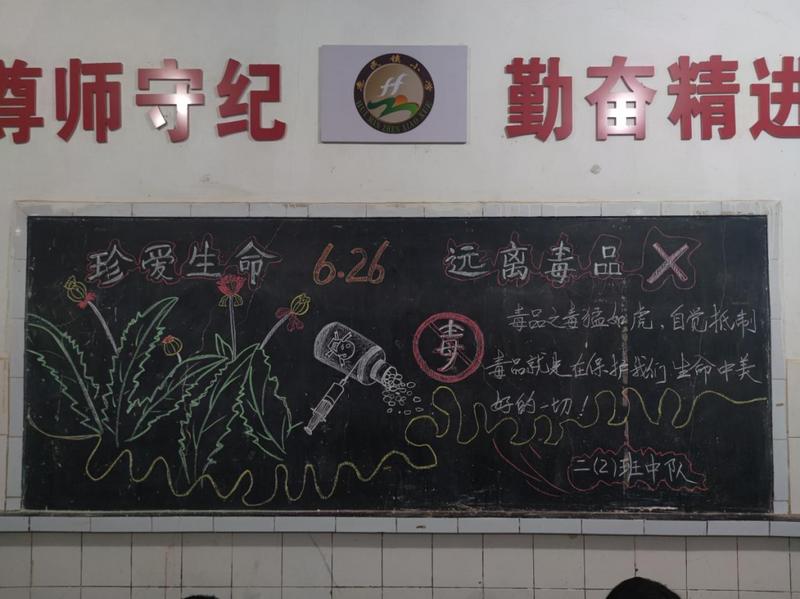 尊师守纪
勤奋精进
珍爱生命 6.26 远离毒品
毒
毒品之毒猛如虎，自觉抵制
毒品就是在保护我们生命中美
好的一切！
二(2)班中队